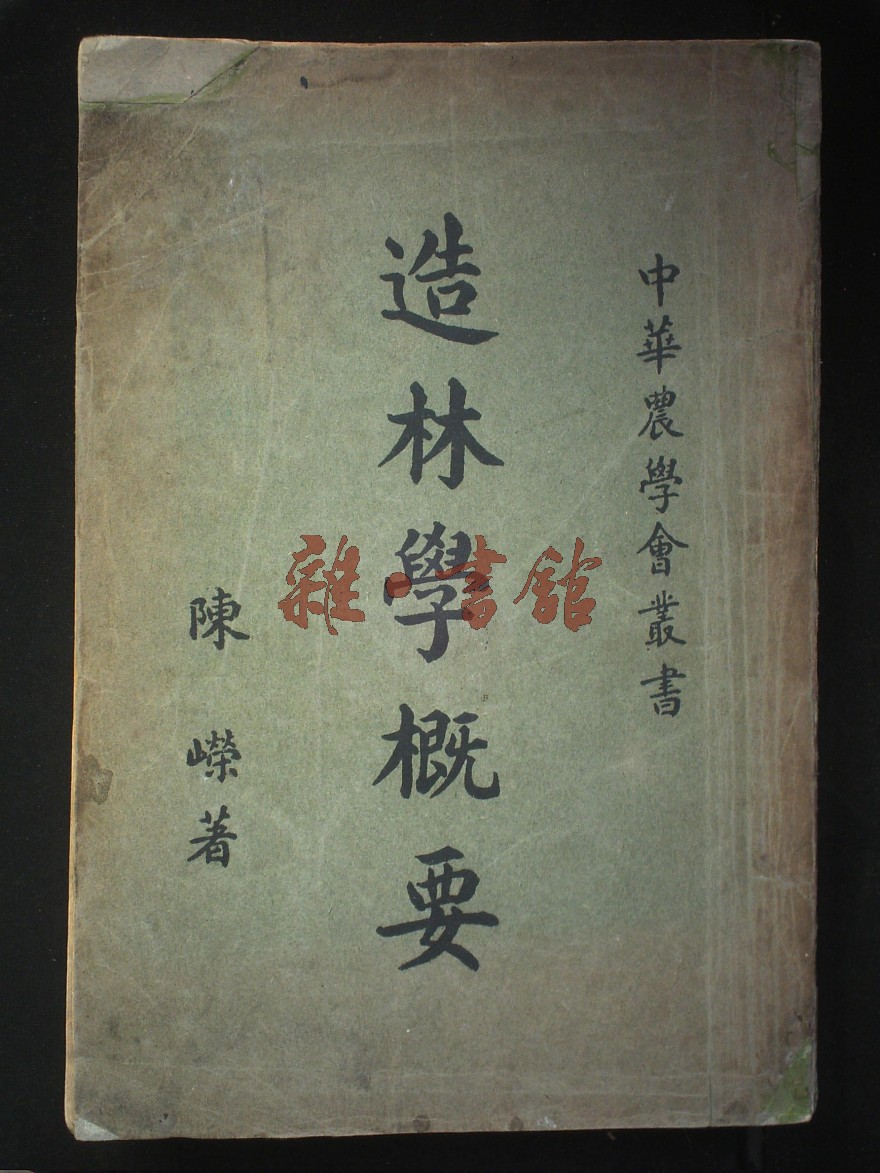 中華農學會叢書
造林學概要
陳嶸著
雜·書館